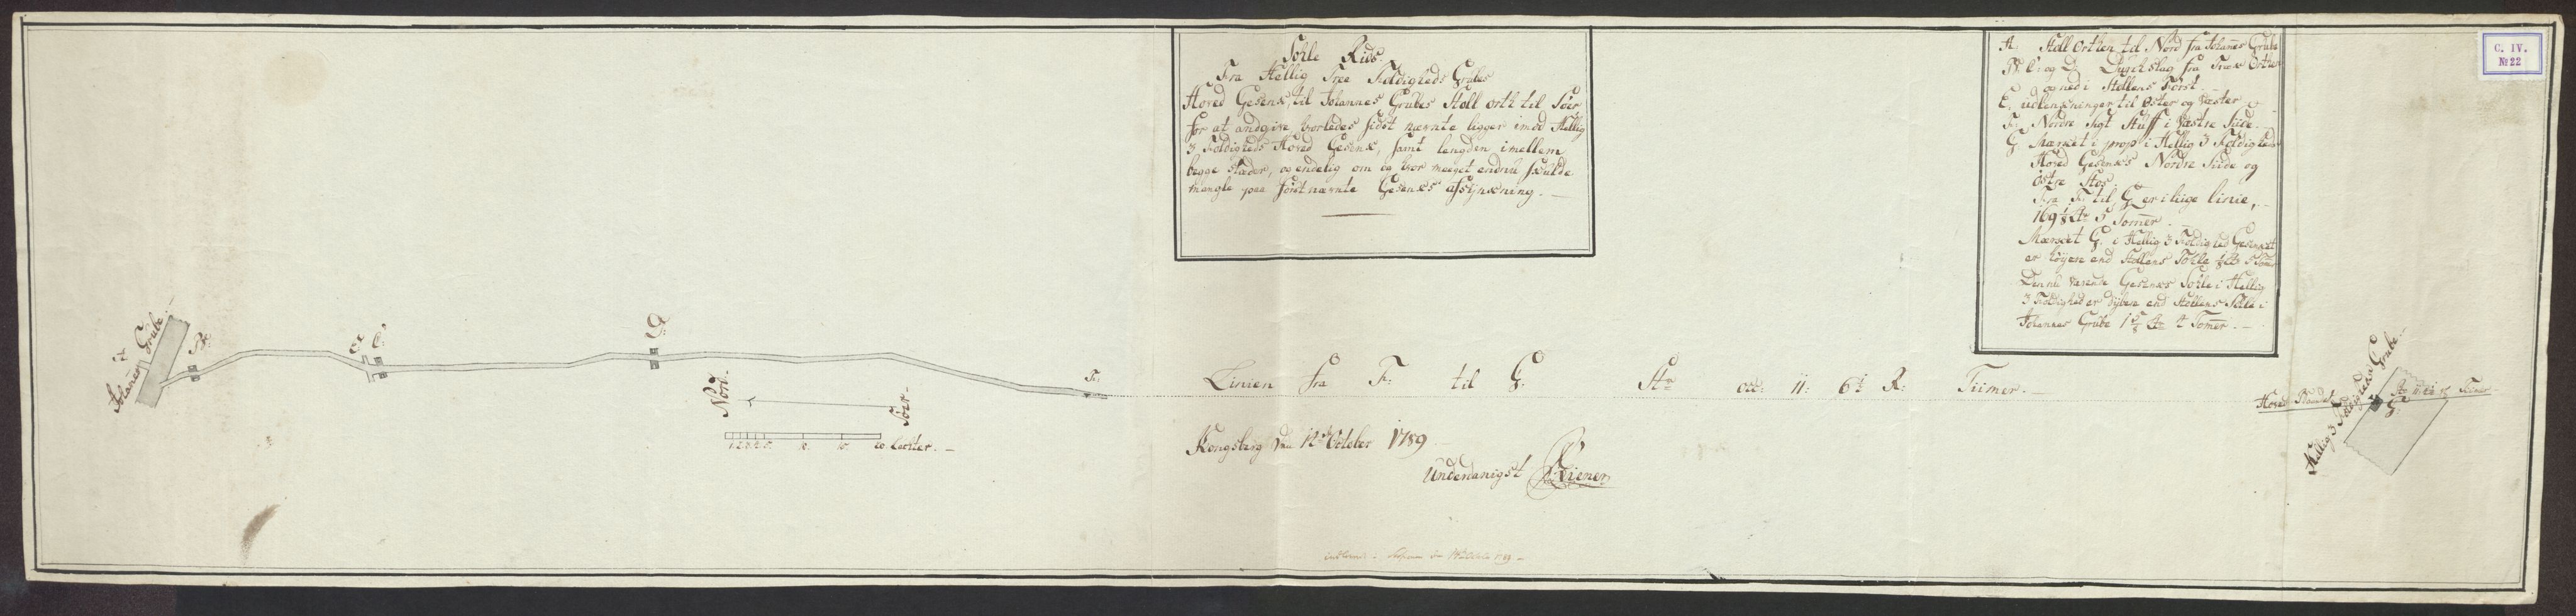 Sohle Rids.
Fra Hellig Tree Foldigheds Grubes
Hoved Gesenk, til Johannes Grubes Stoll Orth til Söer
for at andgive hvorledes sidst nævnte ligger imod Hellig
3 Foldigheds Hoved Gesenk, samt lengden imellem
begge stæder, og endelig om og hvor meeget endnu skulde
mangle paa först nævnte Gesenks afsynkning.
A. Stoll Orthen til Nord fra Johannes Grube
B: C: og D: Durchslag fra Orther
og ned i Stollens Först.
E. udlenkninger til Öster og Wæster
F. Nordre Sigt Stuff i Wæstre Siide
G Mærket i prop i Hellig 3 Foldigheds
Hoved Gesenks Nordre Siide og
Östre Stos.
Fra F: til G er i liige linie,
169 1/8 Ltr 5 Tomer.
Mærket G. i Hellig 3 Foldighed Gesenket
er höyere end Stollens Sohle 5 Tomer
Denne værende Gesenks Sohle i Hellig
3 Foldighed er dybere end Stollens Sohle i
Johannes Grube 1 5/8 Ltr 4 Tomer.
C. IV.
№ 22
Johannes Grube.
A
B:
E C:
D:
F:
Nord.
Söer
1. 2. 3. 4. 5. 10. 15. 20. Lachter.
Linien fra F: til G: Str occ: 11: 6 1/2 R: Tiimer.
Kongsberg den 12 October 1789
Underdanigst Kiener
Hellig 3 Foldigheds Grube.
Hoved
G:
Tiimer